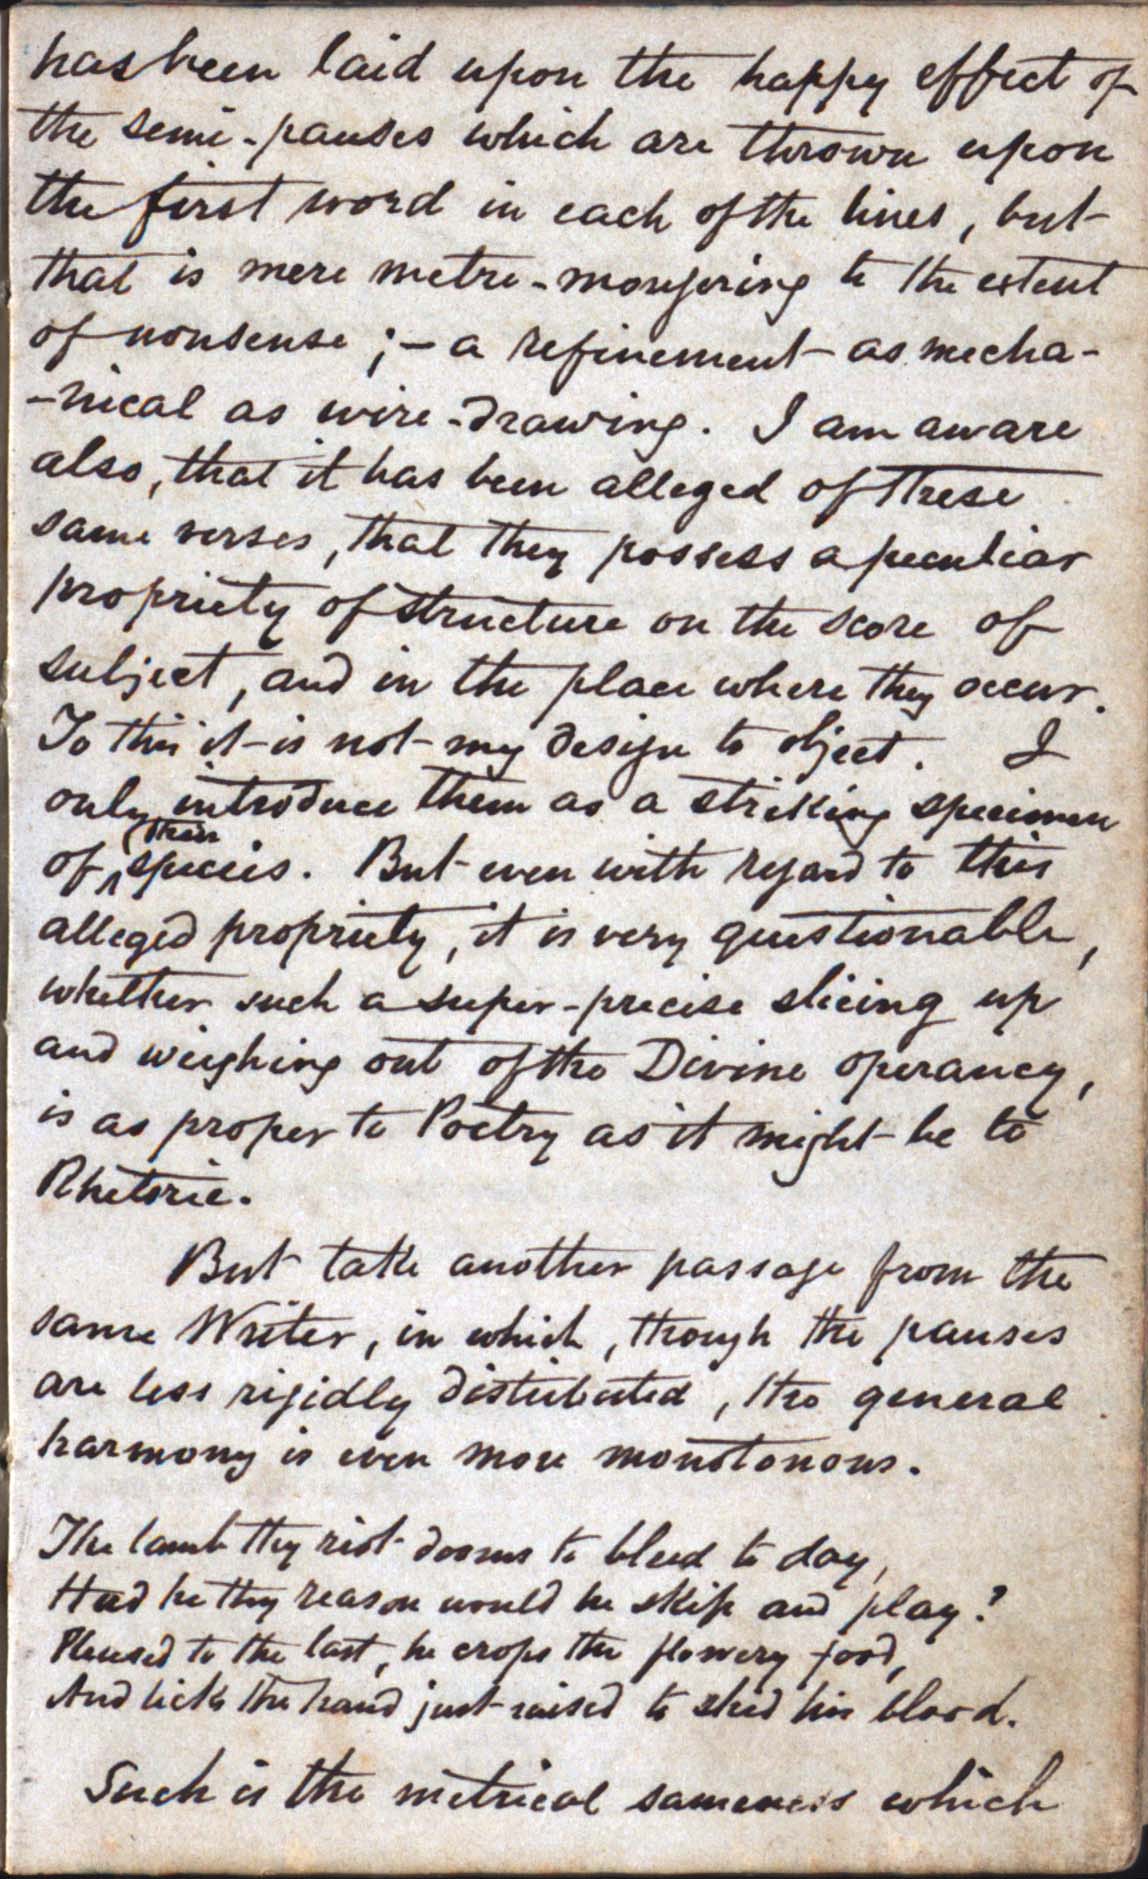 has been laid upon the happy effect of
the semi-pauses which are thrown upon
the first word in each of the lines, but
that is mere metre-mongering to the extent
of nonsense ;— a refinement as mecha-
-nical as wire-drawing. I am aware
also, that it has been alleged of these
same verses, that they possess a peculiar
propriety of structure on the score of
subject, and in the place where they occur.
To this it is not my design to object. I
only introduce them as a striking specimen
their
of species. But even with regard to this
alleged propriety, it is very questionable,
whether such a super-precise slicing up
and weighing out of the Divine operancy,
is as proper to Poetry as it might be to
Rhetoric.
But take another passage from the
same Writer, in which, though the pauses
are less rigidly distributed, the general
harmony is even more monotonous.
The lamb thy riot dooms to bleed to day,
Had he thy reason would he skip and play?
Pleased to the last, he crops the flowery food,
And licks the hand just raised to shed his blood.
Such is the metrical sameness which